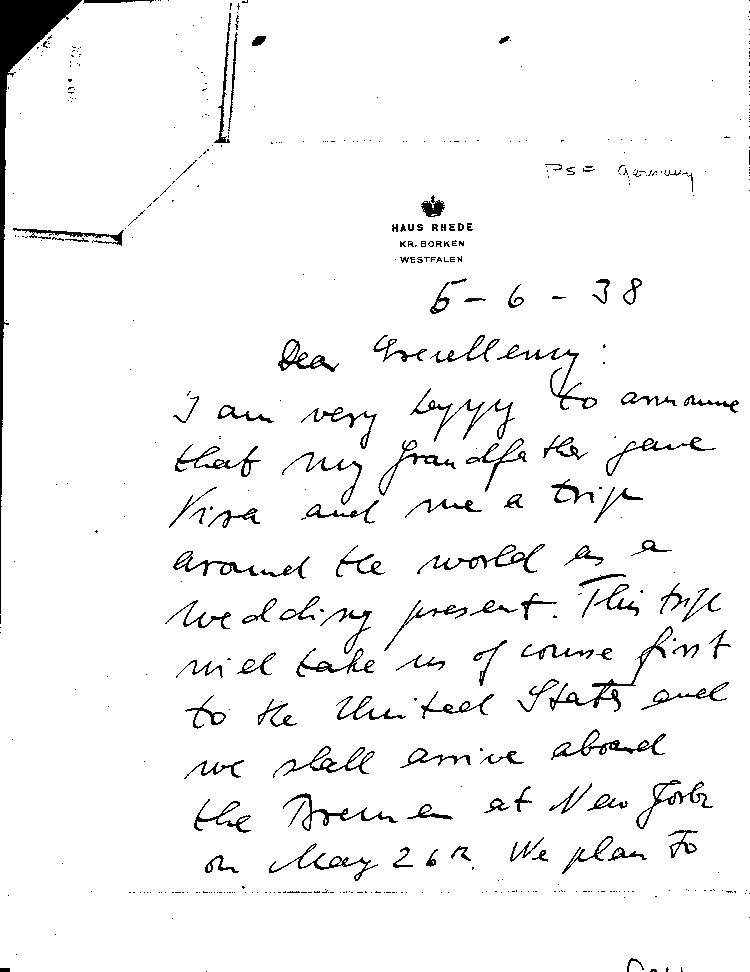 PSF Germany
HAUS RHEDE
KR. BORKEN
WESTFALEN
5-6-38
Dear Excellency:
I am very happy to announce
that my grandfather gave
Kira and me a trip
around the world as a
wedding present. This trip
will take us of course first
to the United States and
we shall arrive aboard
the Bremen at New York
on May 26th. We plan to